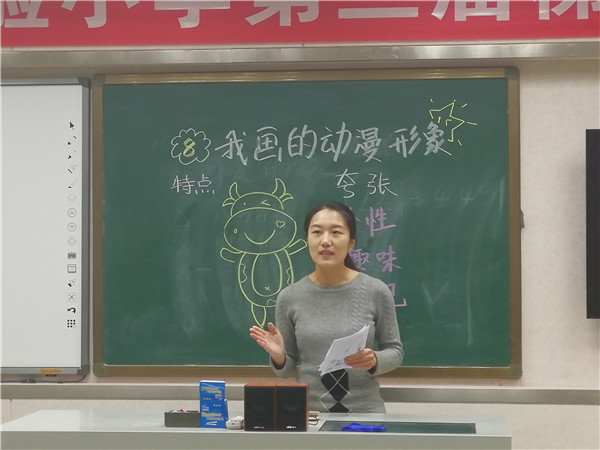 验小学第三届
8 我画的动漫形象
特点 夸张
性
趣味